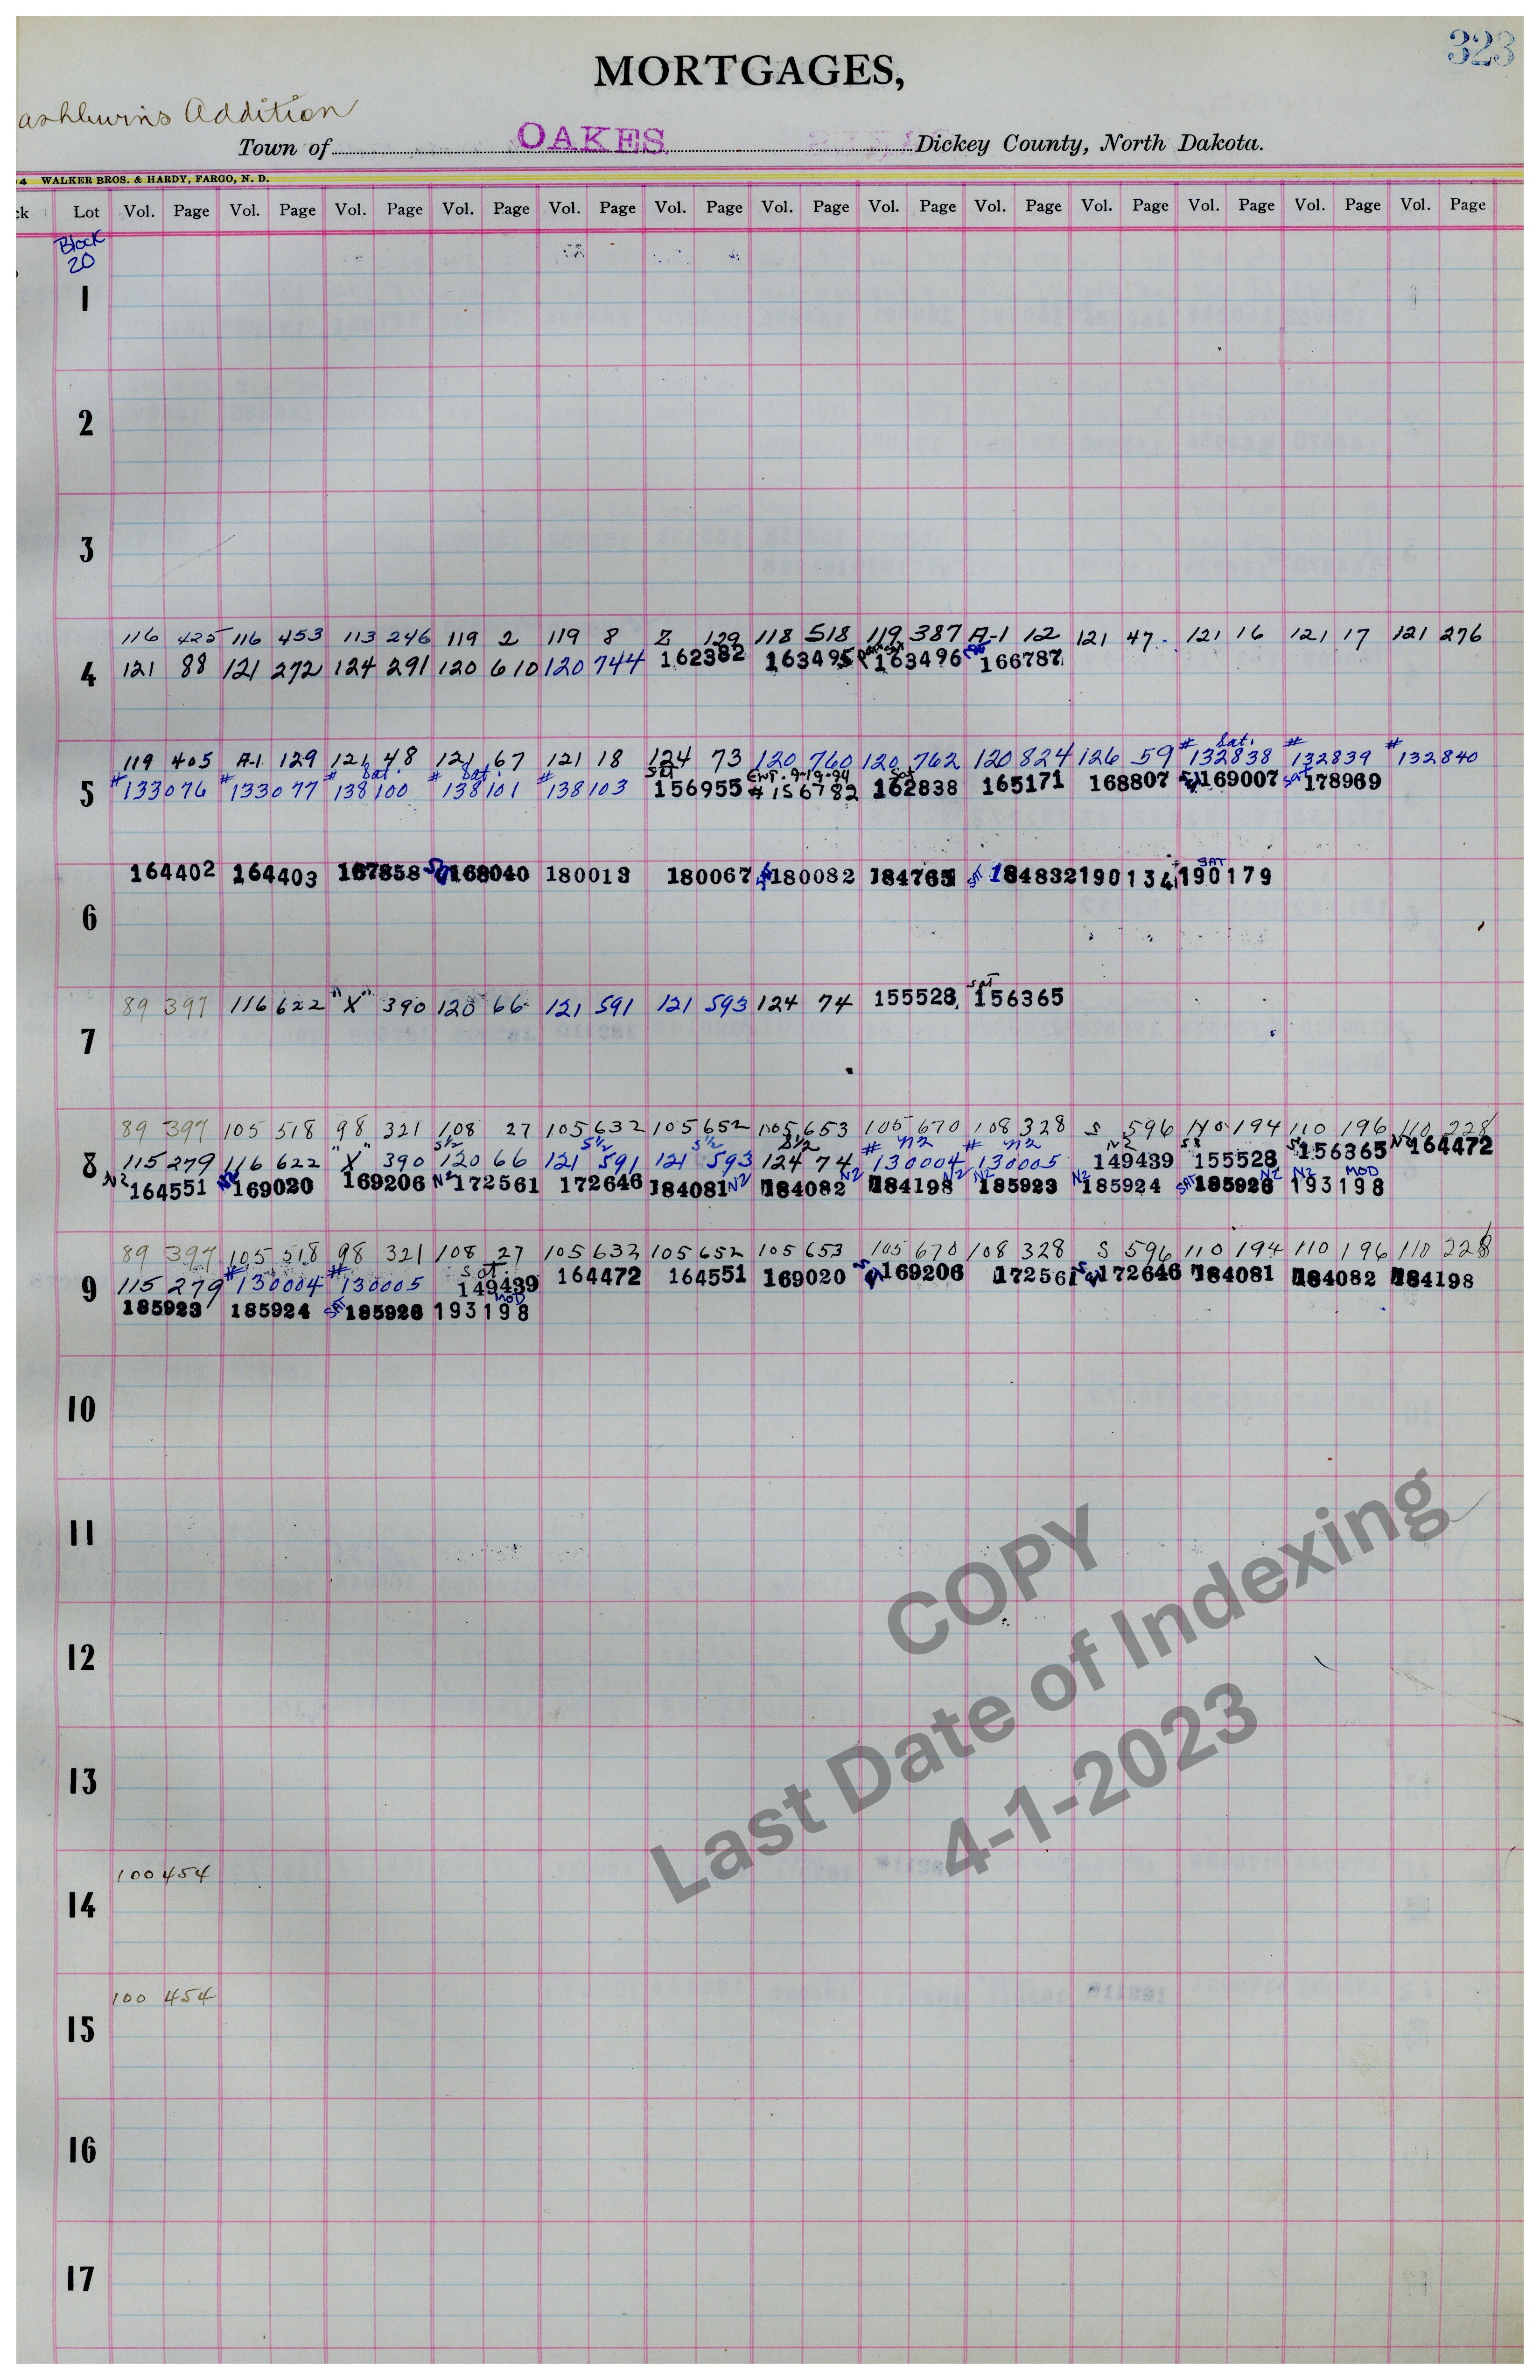 323
MORTGAGES,
ashburn's Addition
Town of OAKES Dickey County, North Dakota.
4 WALKER BROS. & HARDY, FARGO, N. D.
ck Lot Vol. Page Vol. Page Vol. Page Vol. Page Vol. Page Vol. Page Vol. Page Vol. Page Vol. Page Vol. Page Vol. Page Vol. Page Vol. Page
Block
20
1
2
3
116 425 116 453 113 246 119 2 119 8 Z 129 118 518 119 387 A-1 12 121 47 121 16 121 17 121 276
4 121 88 121 272 124 291 120 610 120 744 162382 163495 163496 166787
119 405 A-1 129 121 48 121 67 121 18 124 73 120 760 120 762 120 824 126 59 # Sat. 132838 # 132839 # 132840
5 #133076 #133077 # Sat. 138100 # Sat. 138101 # 138103 Sat 156955 Ent. 9-19-94 #156782 Sat 162838 165171 168807 169007 Sat 178969
164402 164403 167858 168040 180013 180067 180082 184765 184832 190134 SAT 190179
6
89 397 116 622 "X" 390 120 66 121 591 121 593 124 74 155528 Sat 156365
7
89 397 105 518 98 321 108 27 105 632 105 652 105 653 105 670 108 328 S 596 110 194 110 196 110 228
8 115 279 116 622 "X" 390 S½ 120 66 S½ 121 591 S½ 121 593 S½ 124 74 # N2 130004 # N2 130005 N2 149439 155528 156365 N2 164472
N2 164551 N2 169020 169206 N2 172561 172646 184081 N2 184082 N2 184198 N2 N2 185923 N2 185924 SAT 185926 N2 N2 MOD 193198
89 397 105 518 98 321 108 27 105 632 105 652 105 653 105 670 108 328 S 596 110 194 110 196 110 228
9 115 279 #130004 #130005 Sat. 149439 164472 164551 169020 169206 172561 172646 184081 184082 184198
185923 185924 SAT 185926 MOD 193198
10
11
12
13
100 454
14
100 454
15
16
17
COPY
Last Date of Indexing
4-1-2023